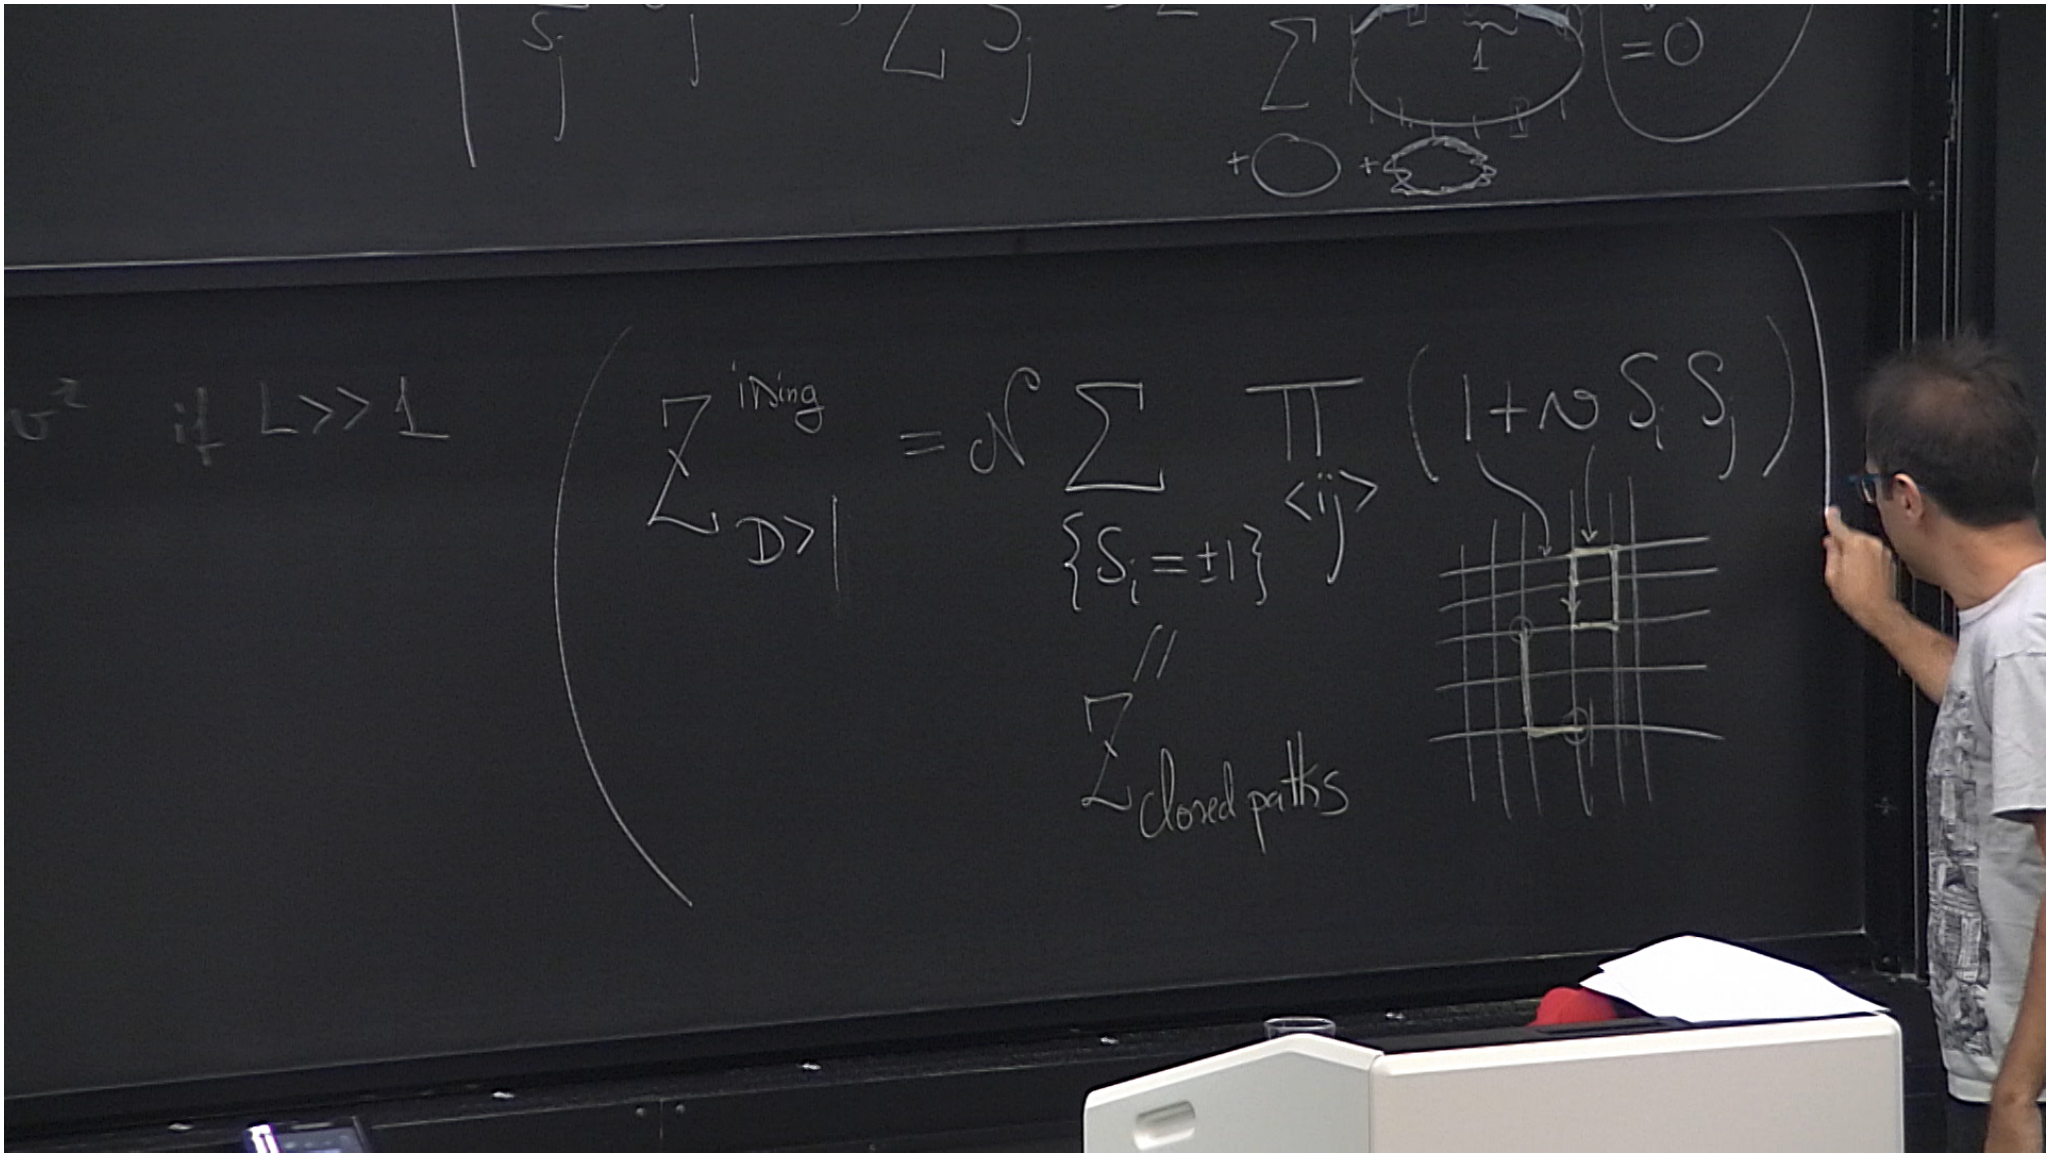 S_j j Σ S_j Σ 1 = 0
+ +
v² if L>>1
Z^{ising}_{D>1} = 𝒩 Σ_{{S_i = ±1}} Π_{<ij>} (1 + v S_i S_j)
//
Z_{closed paths}